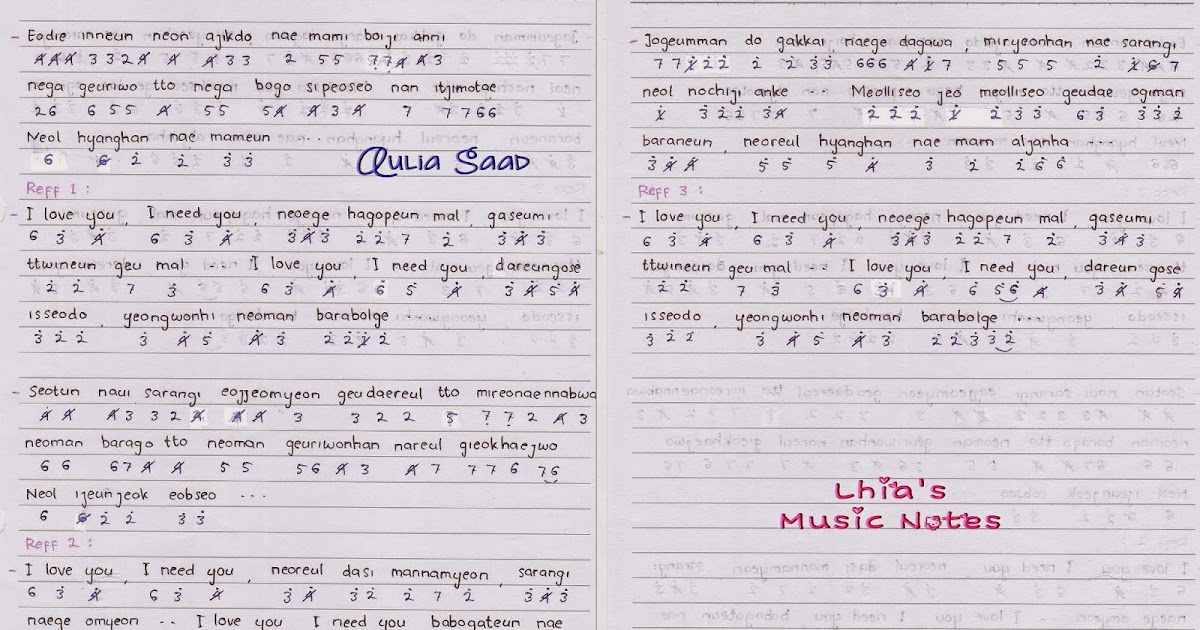 - Eodie inneun neon ajikdo nae mami boiji anni
4 4 4 3 3 2 4 4 4 3 3 2 5 5 7 7 4 4 3
nega geuriwo tto negai bogo sipeoseo nan itjimotae
2 6 6 5 5 4 5 5 5 4 4 3 4 7 7 7 6 6
Neol hyanghan nae mameun ....
6 6 2 2 3 3
Aulia Saad
Reff 1 :
- I love you, I need you, neoege hagopeun mal, gaseumi
6 3 4 6 3 4 3 4 3 2 2 7 2 3 4 3
ttwineun geu mal .... I love you, I need you dareungose
2 2 7 3 6 3 4 6 5 4 3 4 5 4
isseodo, yeongwonhi neoman barabolge ....
3 2 2 3 4 5 4 3 2 2 2 2
- Seotun naui sarangi eojjeomyeon geudaereul tto mireonaennabwa
4 4 4 3 3 2 4 4 4 3 3 2 2 5 7 7 2 4 3
neoman barago tto neoman geuriwonhan nareul gieokhaejwo
6 6 6 7 4 4 5 5 5 6 4 3 4 7 7 7 6 7 6
Neol ijeunjeok eobseo ...
6 6 2 2 3 3
Reff 2 :
- I love you, I need you, neoreul dasi mannamyeon, sarangi
6 3 4 6 3 4 3 4 3 2 2 7 2 3 4 3
naege omyeon .. I love you I need you babogateun nae
- Jogeumman do gakkai naege dagawa, miryeonhan nae sarangi
7 7 1 2 2 2 2 3 3 6 6 6 4 1 7 5 5 5 2 1 6 7
neol nochiji anke ... Meolliseo jeo meolliseo geudae ogiman
1 3 2 2 3 4 2 2 2 1 2 3 3 6 3 3 3 2
baraneun, neoreul hyanghan nae mam aljanha ....
3 4 4 5 5 5 4 3 2 2 6 6
Reff 3 :
- I love you, I need you, neoege hagopeun mal, gaseumi
6 3 4 6 3 4 3 4 3 2 2 7 2 3 4 3
ttwineun geu mal ... I love you, I need you, dareun gose
2 2 7 3 6 3 4 6 5 6 4 3 4 5 4
isseodo, yeongwonhi neoman barabolge ....
3 2 2 3 4 5 4 3 2 2 3 3 2
Lhia's
Music Notes